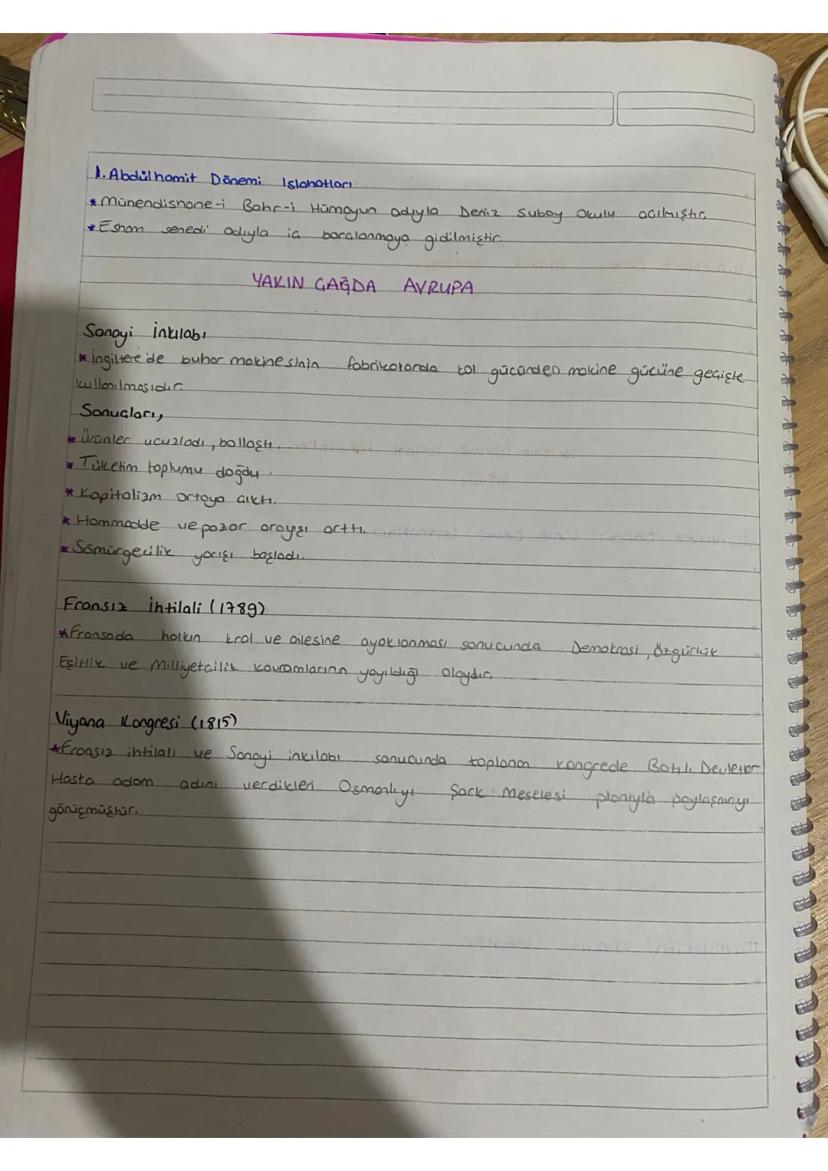 1. Abdülhamit Dönemi Islahatları
* Mühendishane-i Bahr-i Hümayun adıyla Deniz Subay Okulu açılmıştır.
* Esham senedi adıyla iç borçlanmaya gidilmiştir.
YAKIN ÇAĞDA AVRUPA
Sanayi İnkılabı
* İngiltere'de buhar makinesinin fabrikalarda kol gücünden makine gücüne geçişte
kullanılmasıdır.
Sonuçları,
* Ürünler ucuzladı, bollaştı.
* Tüketim toplumu doğdu.
* Kapitalizm ortaya çıktı.
* Hammadde ve pazar arayışı arttı.
* Sömürgecilik yarışı başladı.
Fransız İhtilali (1789)
* Fransada halkın kral ve ailesine ayaklanması sonucunda Demokrasi, Özgürlük
Eşitlik ve Milliyetçilik kavramlarının yayıldığı olaydır.
Viyana Kongresi (1815)
* Fransız ihtilali ve Sanayi inkılabı sonucunda toplanan kongrede Batılı Devletler
Hasta adam adını verdikleri Osmanlıyı Şark Meselesi planıyla paylaşmayı
görüşmüştür.